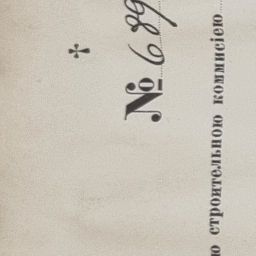 № 689
строительною коммисіею